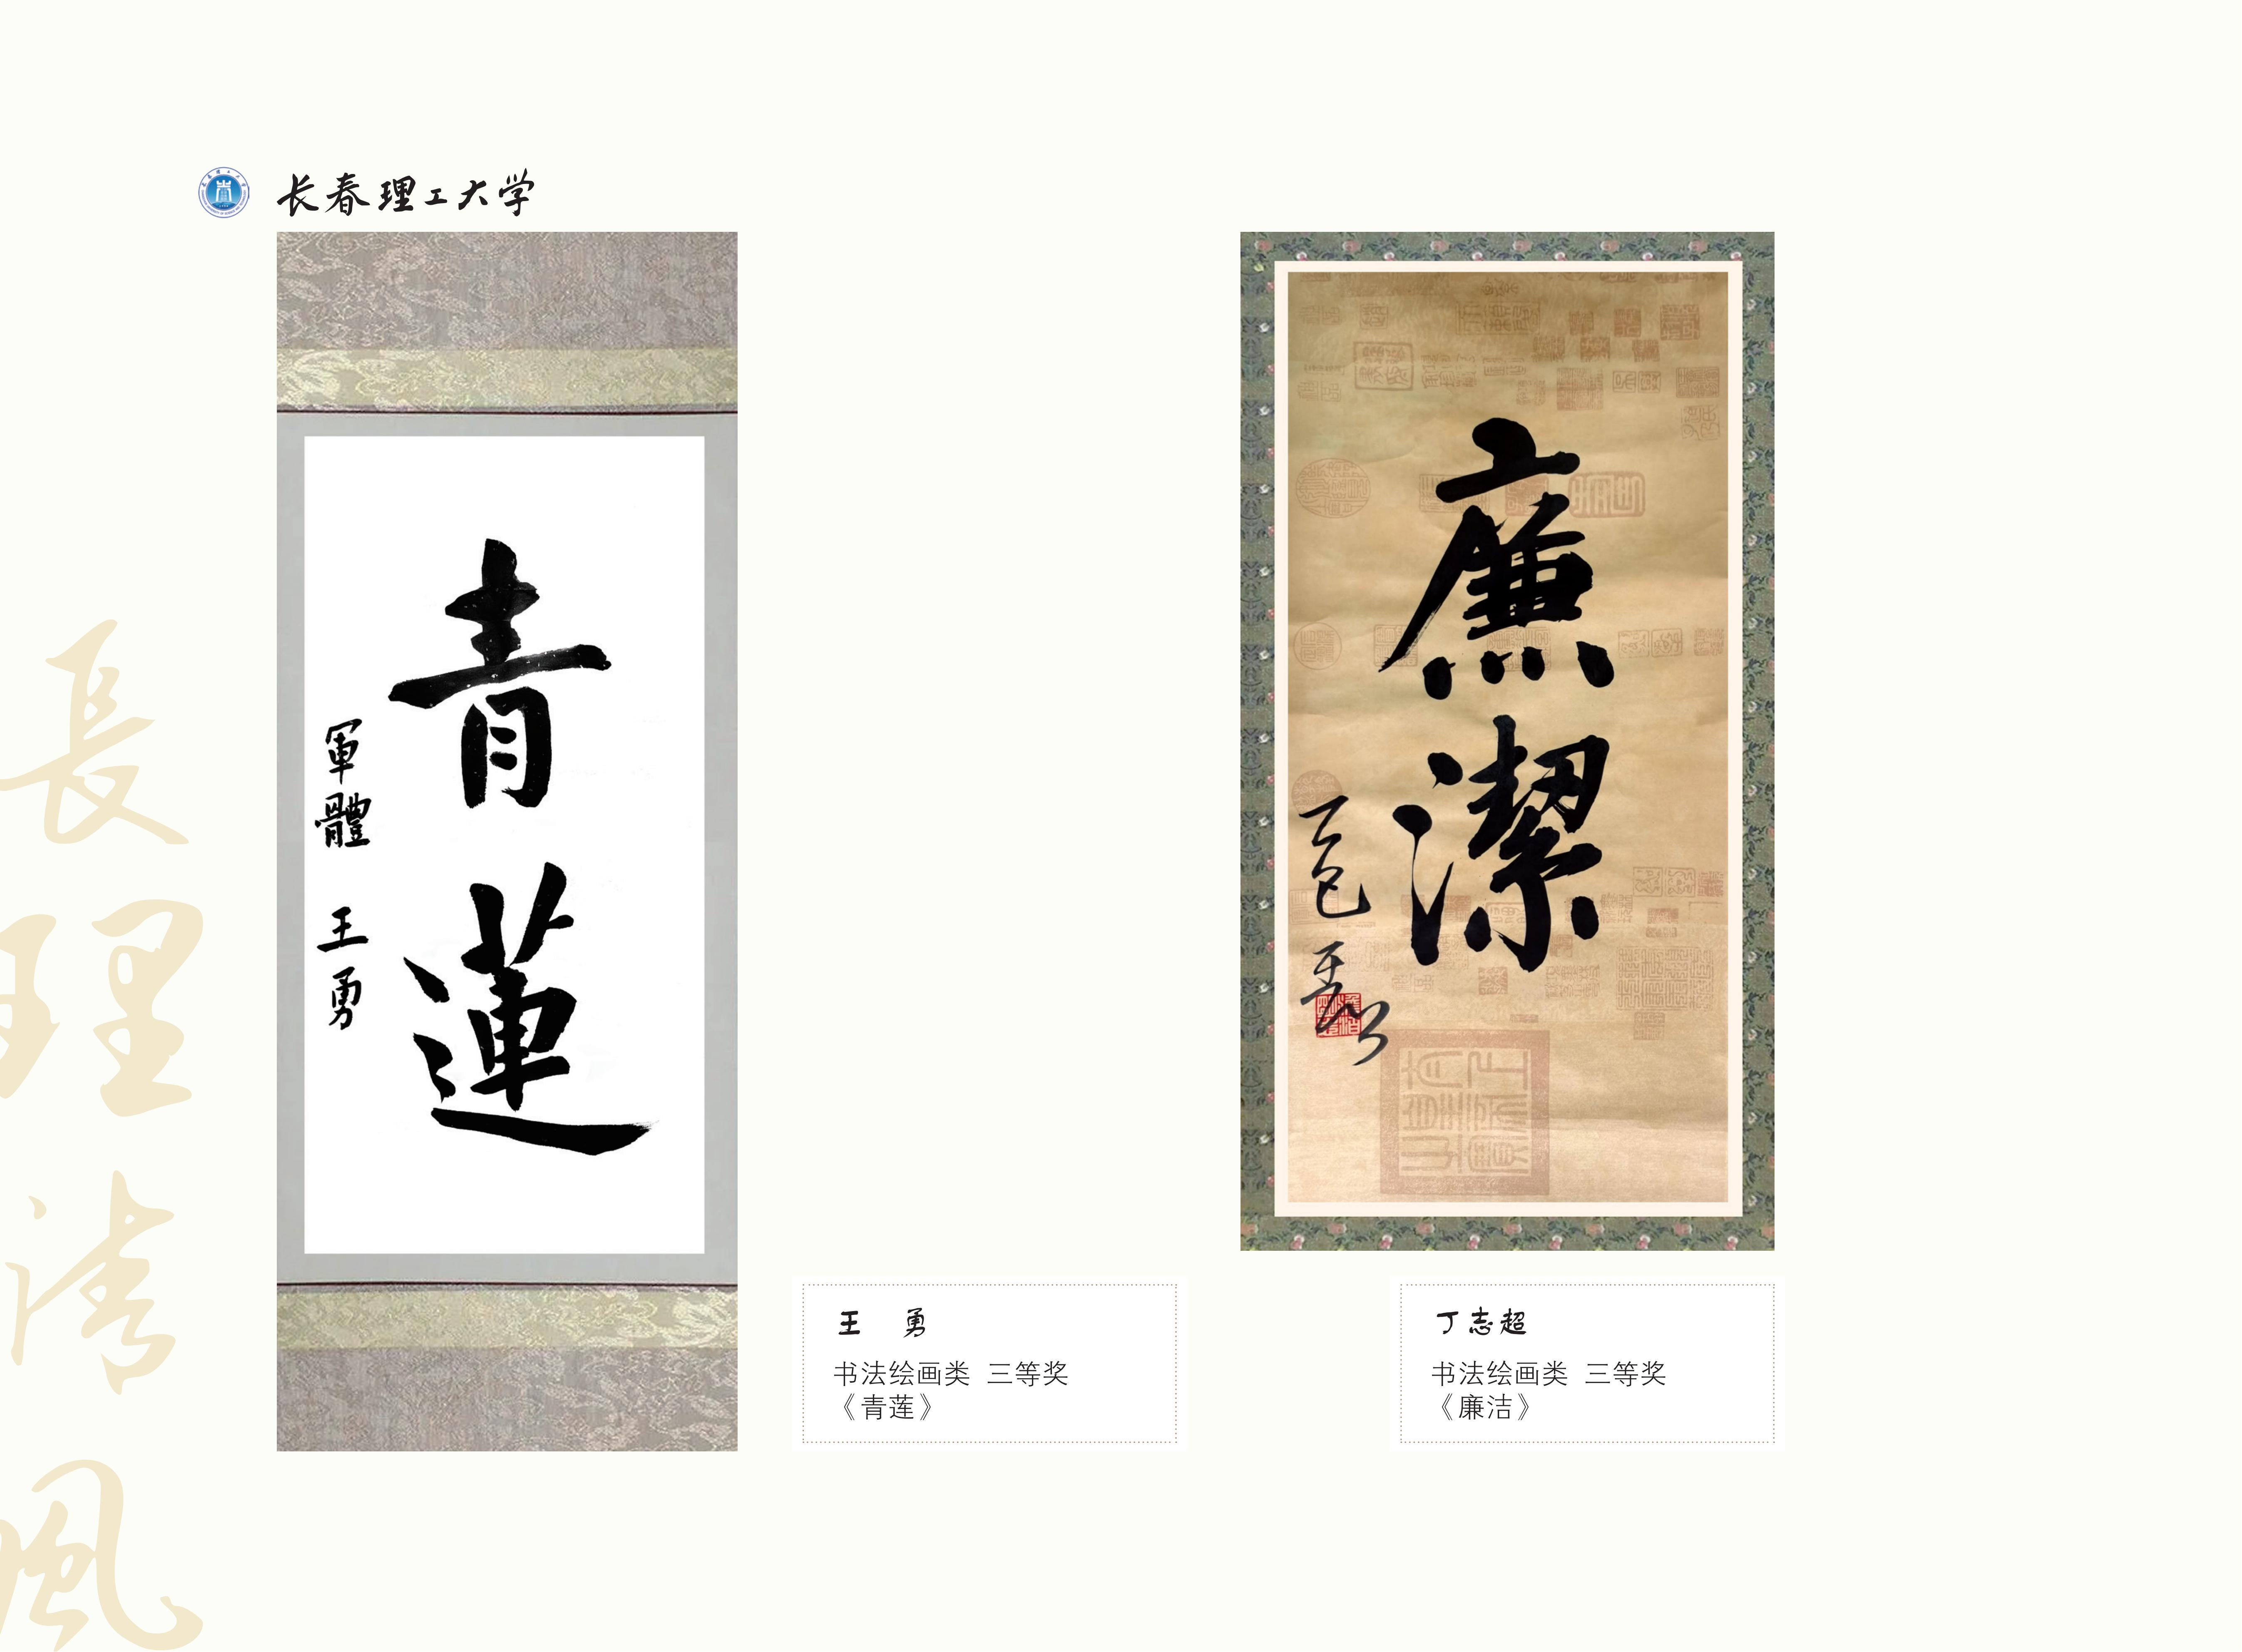 长春理工大学
長理清風
青蓮
軍體 王勇
王 勇
书法绘画类 三等奖
《青莲》
廉潔
丁志超
书法绘画类 三等奖
《廉洁》